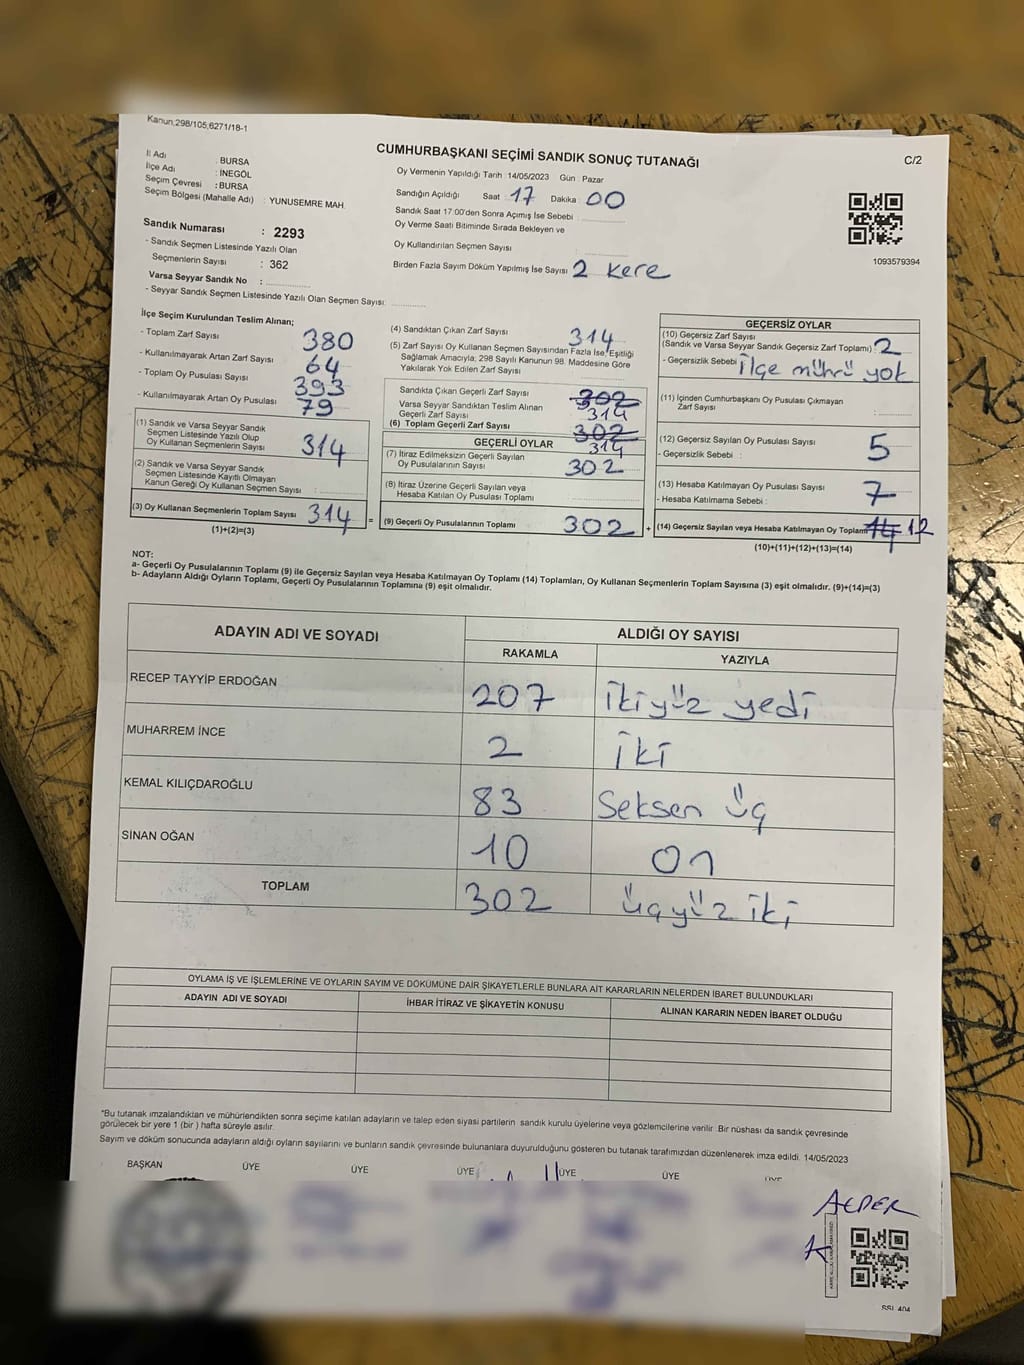 Kanun;298/105;6271/18-1
CUMHURBAŞKANI SEÇİMİ SANDIK SONUÇ TUTANAĞI
C/2
İl Adı : BURSA
İlçe Adı : İNEGÖL
Seçim Çevresi : BURSA
Seçim Bölgesi (Mahalle Adı) : YUNUSEMRE MAH.
Sandık Numarası : 2293
- Sandık Seçmen Listesinde Yazılı Olan
Seçmenlerin Sayısı : 362
Varsa Seyyar Sandık No :
- Seyyar Sandık Seçmen Listesinde Yazılı Olan Seçmen Sayısı:
Oy Vermenin Yapıldığı Tarih :14/05/2023 Gün : Pazar
Sandığın Açıldığı Saat : 17 Dakika : 00
Sandık Saat 17:00'den Sonra Açımış İse Sebebi :
Oy Verme Saati Bitiminde Sırada Bekleyen ve
Oy Kullandırılan Seçmen Sayısı :
Birden Fazla Sayım Döküm Yapılmış İse Sayısı : 2 kere
1093579394
İlçe Seçim Kurulundan Teslim Alınan;
- Toplam Zarf Sayısı : 380
- Kullanılmayarak Artan Zarf Sayısı : 64
- Toplam Oy Pusulası Sayısı : 393
- Kullanılmayarak Artan Oy Pusulası : 79
(1) Sandık ve Varsa Seyyar Sandık
Seçmen Listesinde Yazılı Olup
Oy Kullanan Seçmenlerin Sayısı : 314
(2) Sandık ve Varsa Seyyar Sandık
Seçmen Listesinde Kayıtlı Olmayan
Kanun Gereği Oy Kullanan Seçmen Sayısı :
(3) Oy Kullanan Seçmenlerin Toplam Sayısı : 314 =
(1)+(2)=(3)
(4) Sandıktan Çıkan Zarf Sayısı : 314
(5) Zarf Sayısı Oy Kullanan Seçmen Sayısından Fazla İse, Eşitliği
Sağlamak Amacıyla; 298 Sayılı Kanunun 98. Maddesine Göre
Yakılarak Yok Edilen Zarf Sayısı :
Sandıkta Çıkan Geçerli Zarf Sayısı : 302
Varsa Seyyar Sandıktan Teslim Alınan 314
Geçerli Zarf Sayısı :
(6) Toplam Geçerli Zarf Sayısı : 302
GEÇERLİ OYLAR 314
(7) İtiraz Edilmeksizin Geçerli Sayılan
Oy Pusulalarının Sayısı : 302
(8) İtiraz Üzerine Geçerli Sayılan veya
Hesaba Katılan Oy Pusulası Toplamı :
(9) Geçerli Oy Pusulalarının Toplamı : 302 +
GEÇERSİZ OYLAR
(10) Geçersiz Zarf Sayısı
(Sandık ve Varsa Seyyar Sandık Geçersiz Zarf Toplamı) : 2
- Geçersizlik Sebebi : İlçe mührü yok
(11) İçinden Cumhurbaşkanı Oy Pusulası Çıkmayan
Zarf Sayısı :
(12) Geçersiz Sayılan Oy Pusulası Sayısı : 5
- Geçersizlik Sebebi :
(13) Hesaba Katılmayan Oy Pusulası Sayısı : 7
- Hesaba Katılmama Sebebi :
(14) Geçersiz Sayılan veya Hesaba Katılmayan Oy Toplamı 14 12
(10)+(11)+(12)+(13)=(14)
NOT:
a- Geçerli Oy Pusulalarının Toplamı (9) ile Geçersiz Sayılan veya Hesaba Katılmayan Oy Toplamı (14) Toplamları, Oy Kullanan Seçmenlerin Toplam Sayısına (3) eşit olmalıdır. (9)+(14)=(3)
b- Adayların Aldığı Oyların Toplamı, Geçerli Oy Pusulalarının Toplamına (9) eşit olmalıdır.
ADAYIN ADI VE SOYADI ALDIĞI OY SAYISI
RAKAMLA YAZIYLA
RECEP TAYYİP ERDOĞAN 207 İkiyüz yedi
MUHARREM İNCE 2 İki
KEMAL KILIÇDAROĞLU 83 Seksen üç
SİNAN OĞAN 10 On
TOPLAM 302 üçyüz iki
OYLAMA İŞ VE İŞLEMLERİNE VE OYLARIN SAYIM VE DÖKÜMÜNE DAİR ŞİKAYETLERLE BUNLARA AİT KARARLARIN NELERDEN İBARET BULUNDUKLARI
ADAYIN ADI VE SOYADI İHBAR İTİRAZ VE ŞİKAYETİN KONUSU ALINAN KARARIN NEDEN İBARET OLDUĞU
*Bu tutanak imzalandıktan ve mühürlendikten sonra seçime katılan adayların ve talep eden siyasi partilerin sandık kurulu üyelerine veya gözlemcilerine verilir. Bir nüshası da sandık çevresinde
görülecek bir yere 1 (bir ) hafta süreyle asılır.
Sayım ve döküm sonucunda adayların aldığı oyların sayılarını ve bunların sandık çevresinde bulunanlara duyurulduğunu gösteren bu tutanak tarafımızdan düzenlenerek imza edildi. 14/05/2023
BAŞKAN ÜYE ÜYE ÜYE ÜYE ÜYE
ALPER